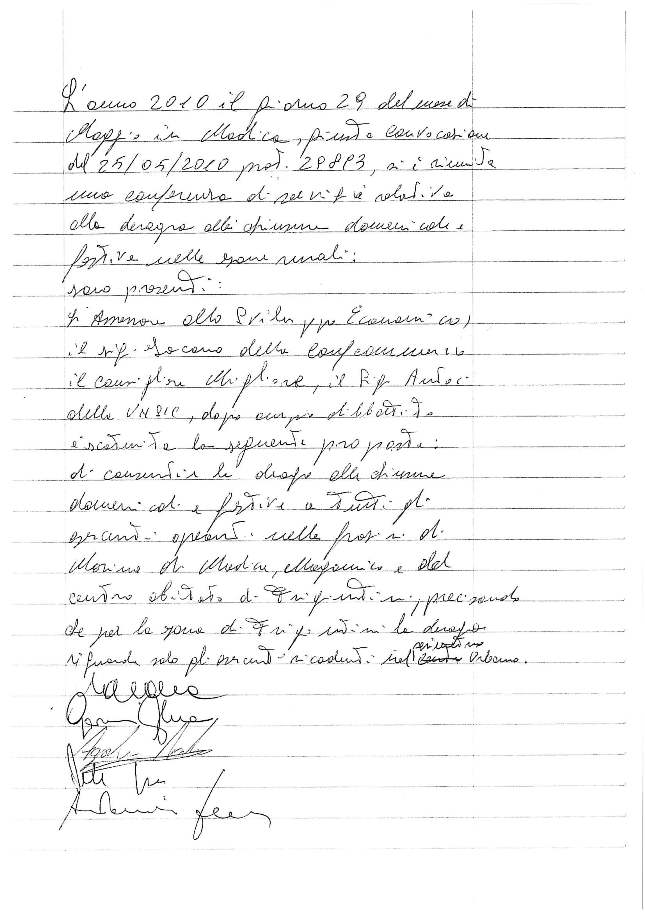 L'anno 2010 il giorno 29 del mese di
Maggio in Modica, giusta convocazione
del 25/05/2010 prot. 29883, si è riunita
una conferenza di servizi relativa
alla deroga alle chiusure domenicali e
festive nelle zone rurali:
sono presenti:
Assessore allo Sviluppo Economico,
il sig. Iocano della Confcommercio
il consigliere Migliore, il Sig.
della, dopo ampio dibattito
è scaturita la seguente proposta:
di consentire la deroga alle chiusure
domenicali e festive a tutti gli
esercenti operanti nelle frazioni di
Marina di Modica, Maganuco e del
centro abitato di Frigintini, precisando
che per la zona di Frigintini la deroga
riguarda solo gli esercenti ricadenti nel perimetro Urbano.